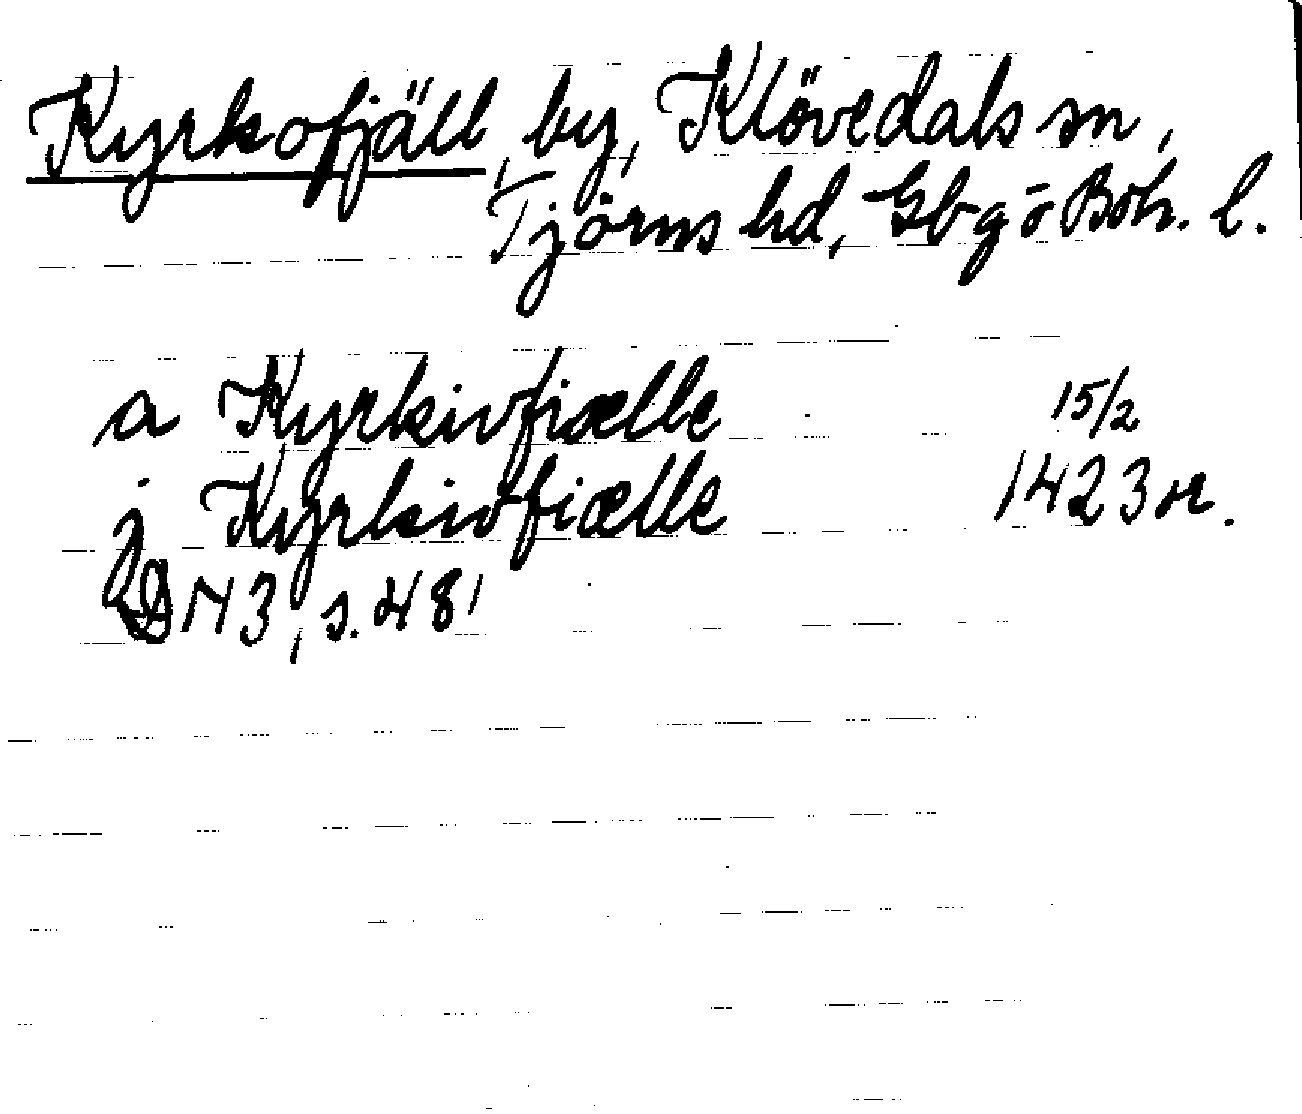 Kyrkofjäll, by, Klövedals sn,
Tjörns hd, Gbg o Boh. l.
a Kyrkiofiælle 15/2
j Kyrkiofiælle 1423 or.
DN 3, s. 481